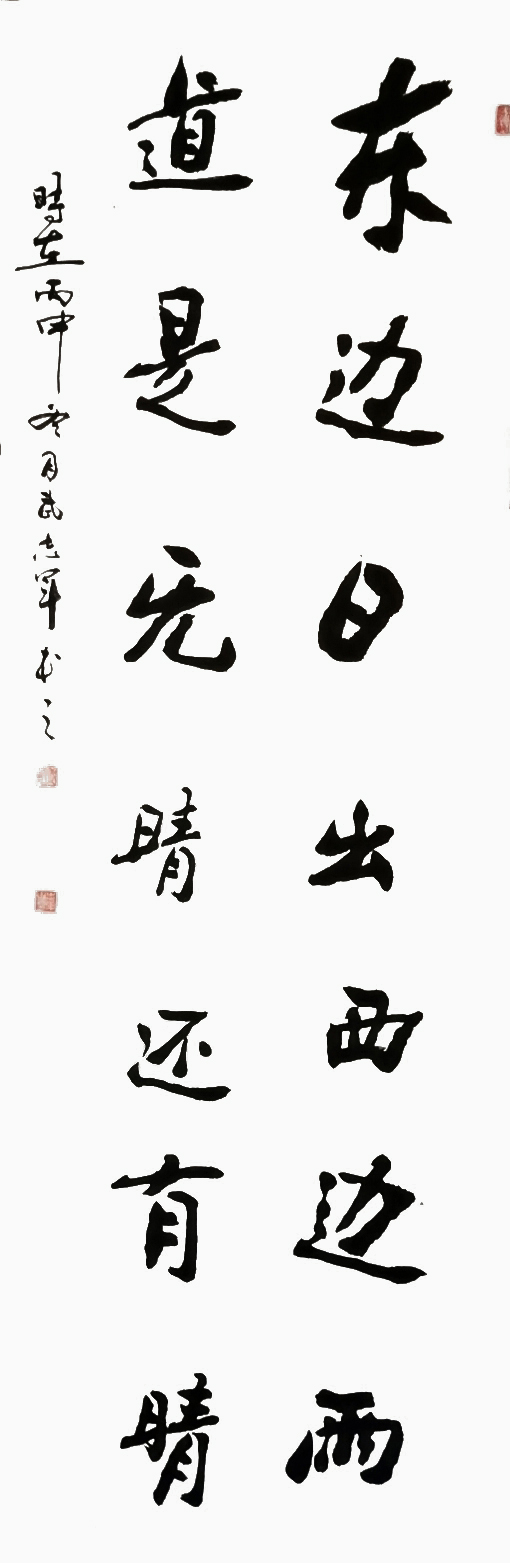 东边日出西边雨
道是无晴还有晴
時在丙申冬月武志军书之